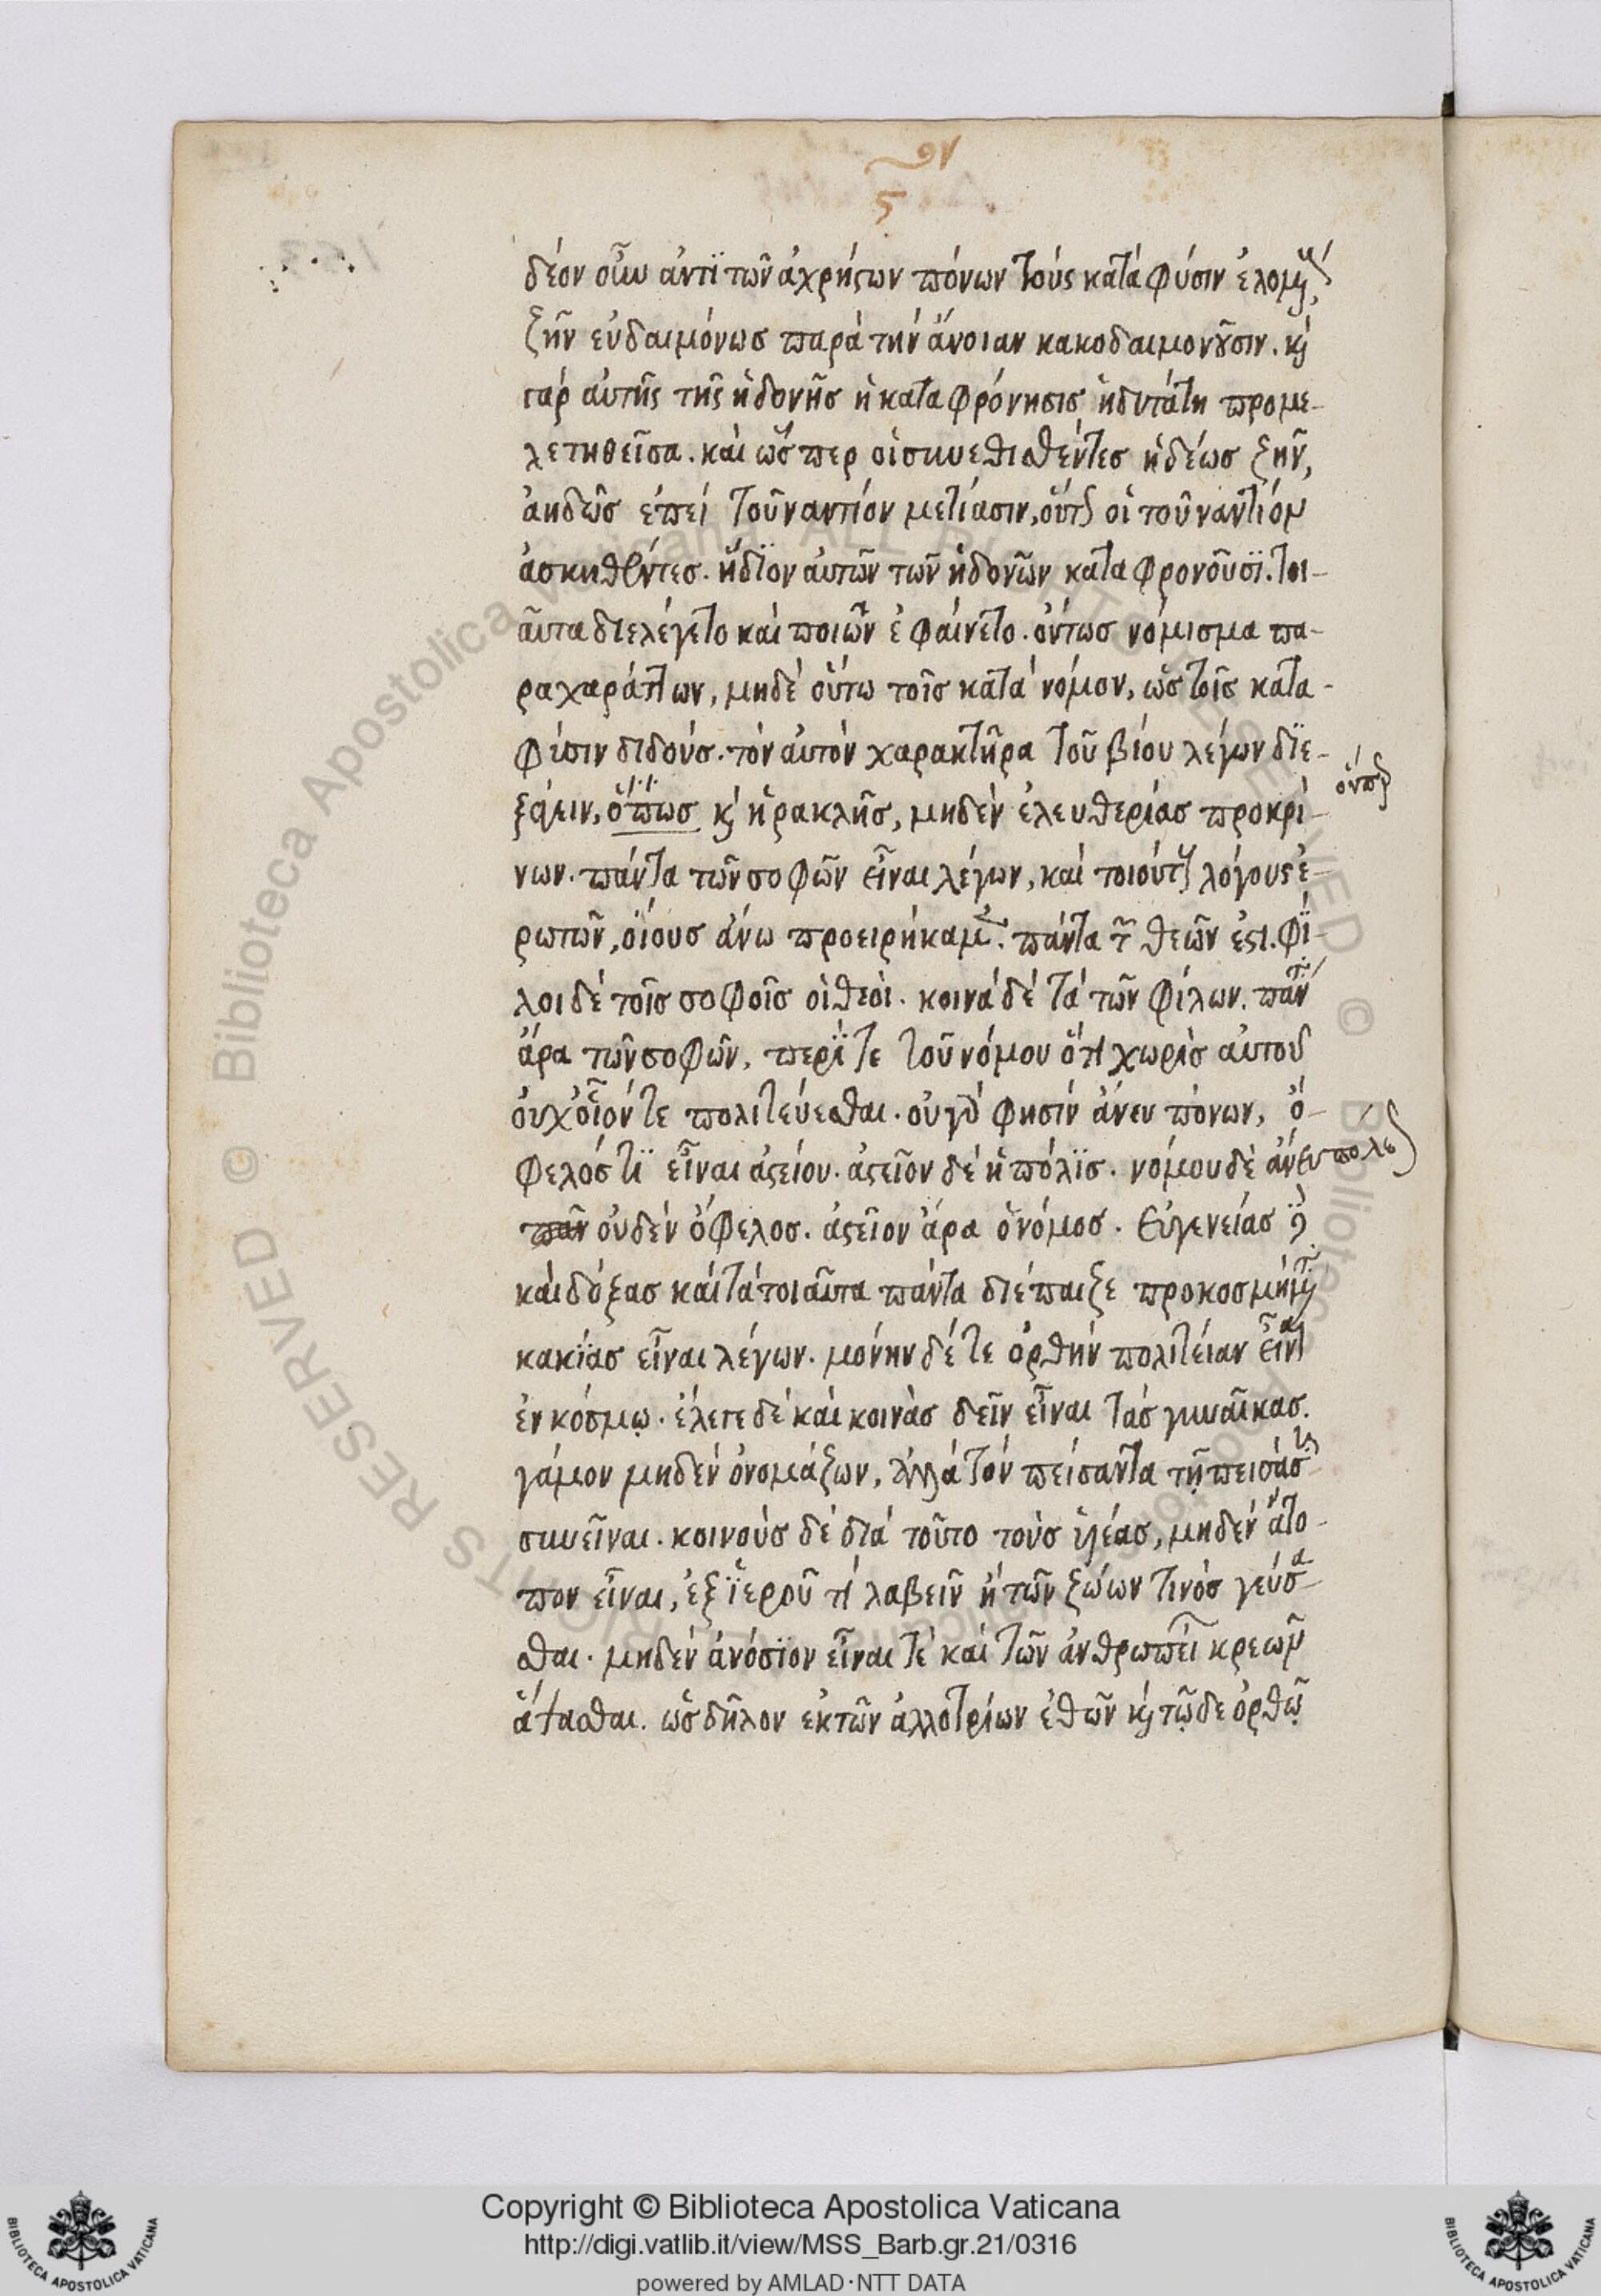 δέον οὖν ἀντὶ τῶν ἀχρήστων πόνων τοὺς κατὰ φύσιν ἑλομένους
ζῆν εὐδαιμόνως παρὰ τὴν ἄνοιαν κακοδαιμονοῦσιν. καὶ
γὰρ αὐτῆς τῆς ἡδονῆς ἡ καταφρόνησις ἡδυτάτη προμε-
λετηθεῖσα. καὶ ὥσπερ οἱ συνεθισθέντες ἡδέως ζῆν,
ἀηδῶς ἐπεὶ τοῦναντίον μετίασιν, οὕτως οἱ τοῦναντίον
ἀσκηθέντες. ἥδιον αὐτῶν τῶν ἡδονῶν καταφρονοῦσι. τοι-
αῦτα διελέγετο καὶ ποιῶν ἐφαίνετο. ὄντως νόμισμα πα-
ραχαράττων, μηδὲ οὕτω τοῖς κατὰ νόμον, ὡς τοῖς κατα-
φύσιν διδούς. τὸν αὐτὸν χαρακτῆρα τοῦ βίου λέγων διε-
ξάγειν, ὅπως καὶ ἡρακλῆς, μηδὲν ἐλευθερίας προκρί-
ὅνπερ
νων. πάντα τῶν σοφῶν εἶναι λέγων, καὶ τοιούτους λόγους ἐ-
ρωτῶν, οἵους ἄνω προειρήκαμεν. πάντα τῶν θεῶν ἐστι. φί-
λοι δὲ τοῖς σοφοῖς οἱ θεοί. κοινὰ δὲ τὰ τῶν φίλων. πάντα
ἄρα τῶν σοφῶν, περί τε τοῦ νόμου ὅτι χωρὶς αὐτοῦ
οὐχ οἷόν τε πολιτεύεσθαι. οὐ γάρ φησιν ἄνευ πόνων, ὄ-
φελός τι εἶναι ἀστείου. ἀστεῖον δὲ ἡ πόλις. νόμου δὲ ἄνευ πόλεως
οὐδὲν ὄφελος. ἀστεῖον ἄρα ὁ νόμος. Εὐγενείας δὲ
καὶ δόξας καὶ τὰ τοιαῦτα πάντα διέπαιζε προκοσμήματα
κακίας εἶναι λέγων. μόνην δέ τε ὀρθὴν πολιτείαν εἶναι
ἐν κόσμῳ. ἔλεγε δὲ καὶ κοινὰς δεῖν εἶναι τὰς γυναῖκας.
γάμον μηδὲν ὀνομάζων, ἀλλὰ τὸν πείσαντα τῇ πεισάσῃ
συνεῖναι. κοινοὺς δὲ διὰ τοῦτο τοὺς υἱέας, μηδὲν ἄτο-
πον εἶναι, ἐξ ἱεροῦ τι λαβεῖν ἢ τῶν ζώων τινὸς γεύσα-
σθαι. μηδὲν ἀνόσιον εἶναι τὲ καὶ τῶν ἀνθρωπείων κρεῶν
ἅψασθαι. ὡς δῆλον ἐκ τῶν ἀλλοτρίων ἐθῶν καὶ τῷδε ὀρθῷ
Copyright © Biblioteca Apostolica Vaticana
http://digi.vatlib.it/view/MSS_Barb.gr.21/0316
powered by AMLAD·NTT DATA